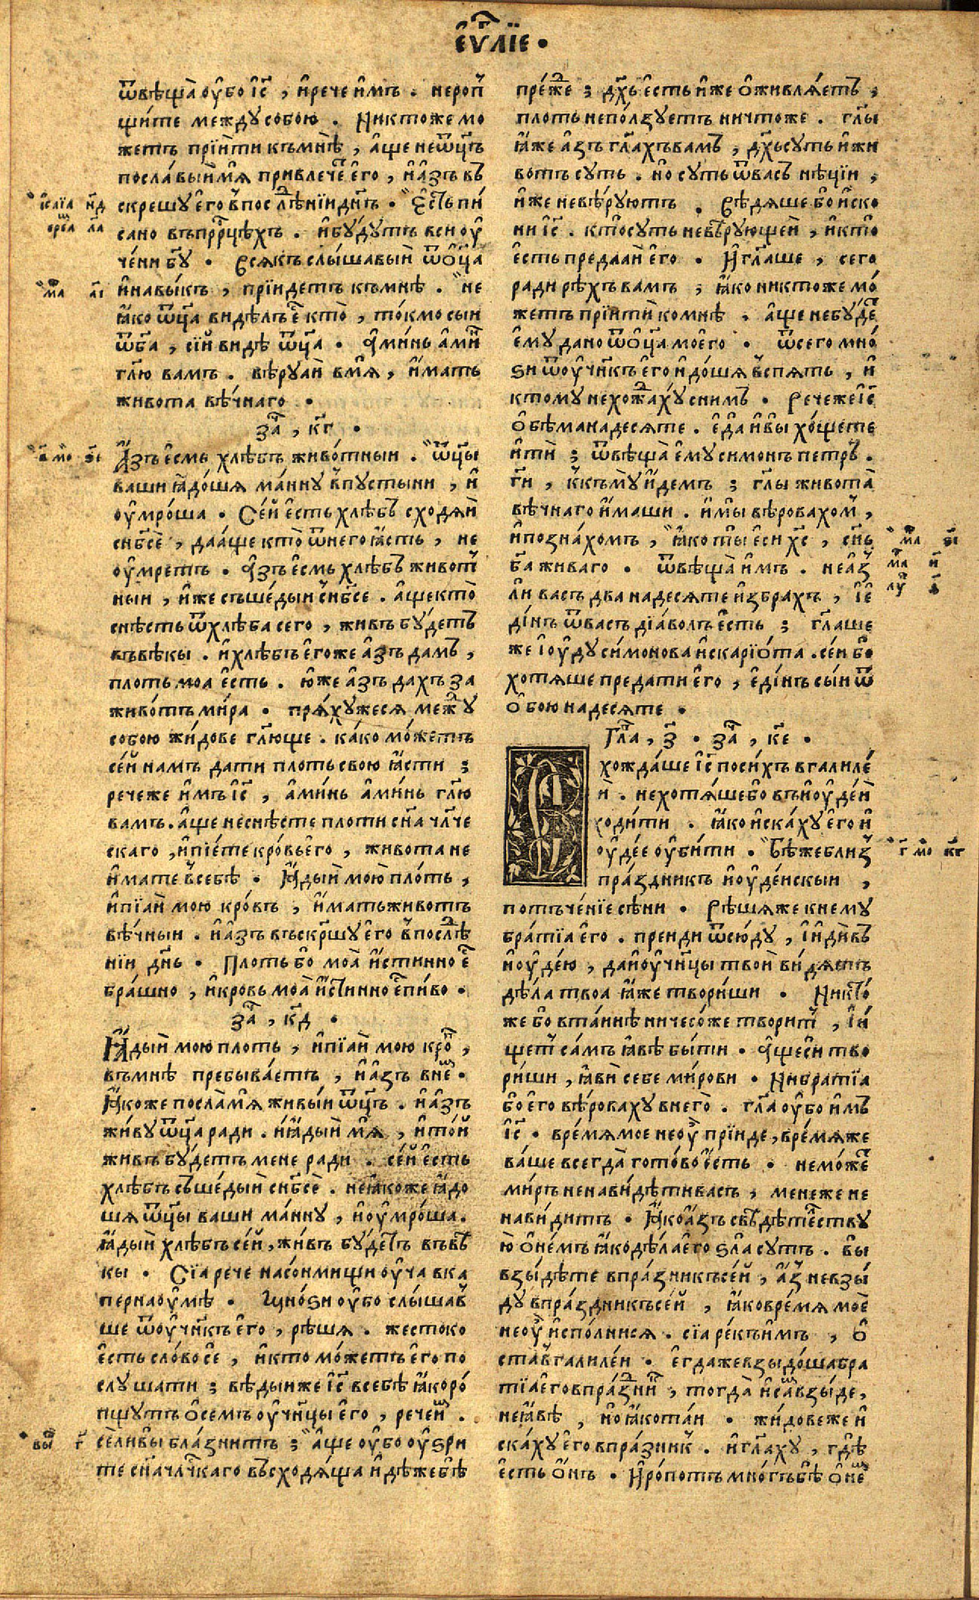 еѵⷢ҇лїе •
ѿвѣща̀ оу҆́бо і҆с҃ , и҆рече и҆мъ . неропⷳ҇
щи́те междусобою . Никтоже мо
жетъ прїи́ти къмнѣ̀ , а҆ще неѿц҃ъ
посла́выи мѧ̀ привлечеⷮ е҆го̀ , и҆а҆́зъ въ
скрешу е҆го̀ в̾послѣⷣнїи дн҃ь • Е҆сть пи́
сано въпрⷪ҇рцѣхъ . и҆бу́дутъ вси оу҆
че́ни бг҃у • Всѧкъ слы́шавыи ѿѻ҆ц҃а
и҆навы́къ , прїидетъ къмнѣ . не
ꙗ҆́ко ѿц҃а ви́дѣлъ еⷭ҇ кто̀ , то́кмо сыи
ѿбг҃а , се́й видѣ̀ ѿц҃а • А҆ми́нь а҆ми́н
гл҃ю вамъ . вѣ́руѧй вмѧ̀ , и҆́мать
живота вѣ́чнаго •
заⷱ , кг •
А҆́зъ е҆́смь хлѣ́бъ живо́тныи . ѿц҃ы
ваши ꙗ҆до́шѧ ма́нну в̾пусты́ни , и҆
оу҆мро́ша • Се́й е҆́сть хлѣ́бъ сходѧ́й
сн҃бсѐ , даа́ще кто̀ ѿнего ꙗ҆́сть , не
оу҆́мретъ . А҆́зъ е҆́смь хлѣ́бъ живоⷮ
ныи , и҆́же съше́дыи сн҃бсе . а҆́ще кто̀
снѣ́сть ѿхлѣ́ба сего , живъ бу́детъ
въвѣ́кы . и҆хлѣ́бъ е҆го́же а҆́зъ дамъ ,
плоть моа е҆́сть . ю҆́же а҆́зъ дахъ за
живо́тъ ми́ра • прѧ́хужесѧ межⷣу
собою жи́дове гл҃юще . ка́ко мо́жетъ
се́й намъ да́ти плоть свою ꙗ҆́сти ;
речеже и҆́мъ і҆с҃ , а҆ми́нь а҆ми́нь гл҃ю
вамъ . а҆́ще неснѣ́сте плоти сн҃а чл҃че
скаго , и҆пїе́те кро́вь его̀ , живота не
и҆́мате в̾себѣ̀ • Ꙗ҆ды́й мою̀ пло́ть ,
и҆пїѧ́й мою̀ кро́вь , и҆́мать живо́тъ
вѣ́чныи . и҆а҆́зъ въскр҃шу е҆го̀ в̾послѣⷣ
нїи дн҃ь • Плоть бо моа̀ и҆́стинно еⷭ҇
бра́шно , и҆кровь моа̀ и҆́стинно еⷭ҇ пи́во •
заⷱ , кд •
Ꙗ҆ды́й мою̀ плоть , и҆пїѧ́й мою̀ кроⷡ ,
въмнѣ̀ пребыва́етъ , и҆а҆́зъ внеⷨ •
Ꙗ҆́коже посла́ мѧ живы́и ѿц҃ъ . и҆а҆́зъ
живу̀ ѿц҃а ради . и҆ꙗ҆ды́й мѧ̀ , и҆то́й
живъ бу́детъ мене ради . се́й е҆́сть
хлѣ́бъ съше́дый сн҃бсѐ . неꙗ҆́коже ꙗ҆до́
шѧ ѿц҃ы ваши ма́нну , и҆оу҆мро́ша .
Ꙗ҆ды́й хлѣ́бъ се́й , жи́въ бу́детъ въвѣ́
кы • Сїа рече насо́нмищи оу҆ча вка
пернаоу҆мѣ • Мно́ѕи оу҆бо слы́шавⷲ
ше ѿоу҆ч҃нкъ е҆го̀ , рѣ́шѧ . жестоко
е҆́сть сло́во се̑ , и҆кто мо́жетъ е҆го по
слу́шати ; вѣ́дыиже і҆с҃ всебѣ̀ ꙗ҆́коро́
пщутъ ѻ҆семъ оу҆ч҃нцы е҆го̀ , речеиⷨ .
се́ли вы̀ бла́знитъ ; а҆́ще оу҆бо оу҆́зри
те сн҃а чл҃чⷭ҇каго въсходѧ́ща и҆дѣ́жебѣ
пре́жⷣе ; дх҃ъ е҆́сть и҆́же ѻ҆живлѧ́етъ ,
плоть непо́лзуетъ ничтоже . гл҃ы
ꙗ҆́же а҆́зъ гл҃ахъвамъ , дх҃ъсуть и҆жи
вотъ суть . но суть ѿвасъ нѣ́цїи ,
и҆́же невѣ́руютъ . Вѣ́дѧше бо и҆ско
ни і҆с҃ . ктосуть невѣ́рующеи , и҆кто
е҆́сть предаѧ́и е҆го • И҆гл҃аше , сего
ради рѣ́хъ вамъ ; ꙗ҆́ко никтоже мо́
жетъ прїи́ти комнѣ̀ , а҆́ще небу́деⷮ
е҆му̀ дано ѿѻ҆ц҃а моего̀ • ѿсего мно́
ѕи ѿоу҆ч҃нкъ е҆го и҆до́шѧ в̾спѧть , и҆
ктому нехожⷣа́ху снимъ . Речеже і҆с҃
ѻ҆бѣ́манадесѧте . е҆да и҆вы̀ хо́щете
и҆ти́ ; ѿвѣща̀ е҆му симонъ петръ .
гⷭ҇и , ккъмꙋ и҆́демъ ; гл҃ы живота̀
вѣ́чнаго и҆́маши . и҆мы̀ вѣ́ровахомⷨ ,
и҆позна́хомъ , ꙗ҆́ко ты̀ е҆си хс҃ , сн҃ъ
бг҃а живаго . ѿвѣща̀ и҆́мъ . не а҆́зⷥ
ли васъ два надесѧте и҆збра́хъ , і҆е
ди́нъ ѿвасъ дїа́волъ е҆́сть ; гл҃аше
же і҆оу҆ду симонова и҆скарїо́та . се́и бо
хотѧше предати е҆го , е҆ди́нъ сы́и ѿ
ѻ҆бою надесѧте •
Глаⷡ , з҃ . заⷱ , ке •
хожда́ше і҆с҃ посихъ в галилѐ
и . нехотѧ́шебо въи҆оу҆де́и
ходи́ти . ꙗ҆́ко и҆ска́ху е҆го и҆
оу҆де́е оу҆би́ти . Бѣ́же близⷥ
пра́здникъ и҆оу҆де́искыи ,
потъче́нїе сѣ́ни • Рѣ́шѧже кнему
бра́тїа е҆го . преиди ѿсю́ду , і҆и҆ди́въ
и҆оу҆де́ю , даи҆оу҆ч҃нцы твои̑ ви́дѧтъ
дѣ́ла твоа ꙗ҆́же твори́ши • Никто́
же бо вта́инѣ ничесо́же твори́тⷮ , і҆и҆
щетⷮ са́мъ ꙗ҆́вѣ бы́ти • А҆́щеси́ тво
ри́ши , ꙗ҆ви̑ себе ми́рови • Нибра́тїа
бо е҆го вѣ́роваху внего̀ . гл҃а оу҆́бо и҆́мъ
і҆с҃ . вре́мѧмое неоу҆̀ прїиде , вре́мѧже
ва́ше всегда̀ гото́во е҆́сть • немо́жеⷮ
миръ ненави́дѣтивасъ , менеже не
нави́дитъ • Ꙗ҆́коа҆́зъ свѣдѣ́те́ству
ю ѻ҆не́мъ ꙗ҆́кодѣ́ла е҆го ѕла̀ суть . вы
взы́дѣте впра́зникъсе́й , а҆́зⷥ невзы́
ду впра́здникъсе́й , ꙗ҆́ковре́мѧ моѐ
неоу҆̀ и҆спо́лнисѧ . сїа ре́къи҆́мъ , ѻ҆
ста̀в галиле́и • е҆гдажевзы́доша бра
тїа е҆го впра́знїиⷦ , тогда̀ и҆са́мвзы́де ,
неꙗ҆́вѣ , но ꙗ҆́кота́и • жи́довеже и҆
ска́ху е҆го впра́зникⷦ . и҆гл҃аху , гдѣ̀
е҆́сть ѻ҆́нъ • И҆ро́потъ мно́гъбѣ̀ ѻ҆неⷨ